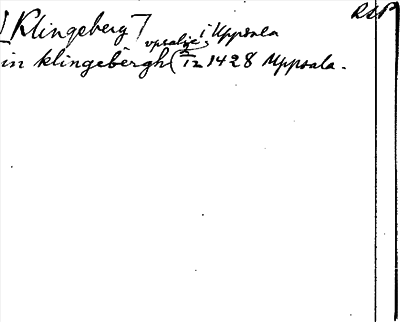 RAP
[Klingeberg] i Uppsala
in klingebergh (upsalie 2/12 1428 Uppsala.